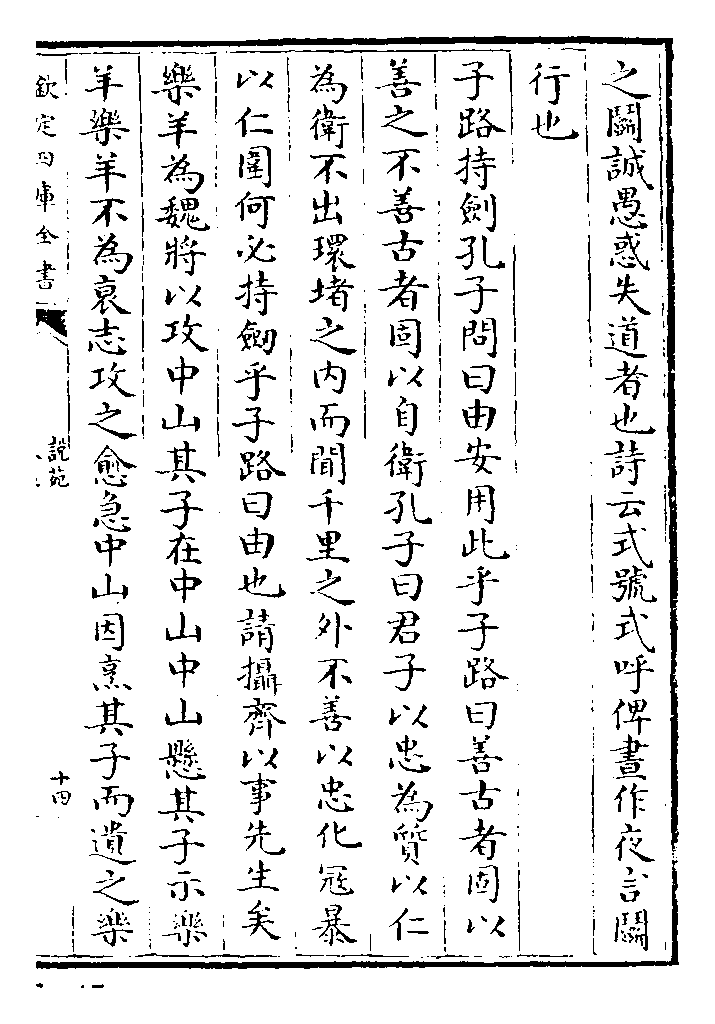 之鬭誠愚惑失道者也詩云式號式呼俾晝作夜言鬭
行也
子路持劍孔子問曰由安用此乎子路曰善古者固以
善之不善古者固以自衛孔子曰君子以忠為質以仁
為衛不出環堵之内而聞千里之外不善以忠化冦暴
以仁圍何必持劒乎子路曰由也請攝齊以事先生矣
樂羊為魏將以攻中山其子在中山中山懸其子示樂
羊樂羊不為衰志攻之愈急中山因烹其子而遺之樂
欽定四庫全書
說苑
十四